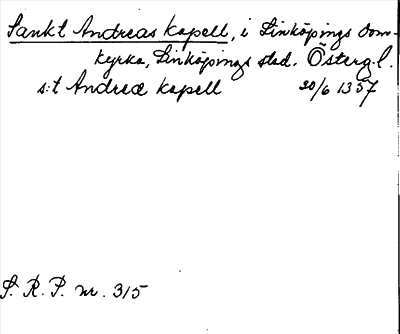 Sankt Andreas kapell, i Linköpings dom-
kyrka, Linköpings stad. Östergl.
s:t Andreæ kapell 20/6 1357
S. R. P. nr. 315